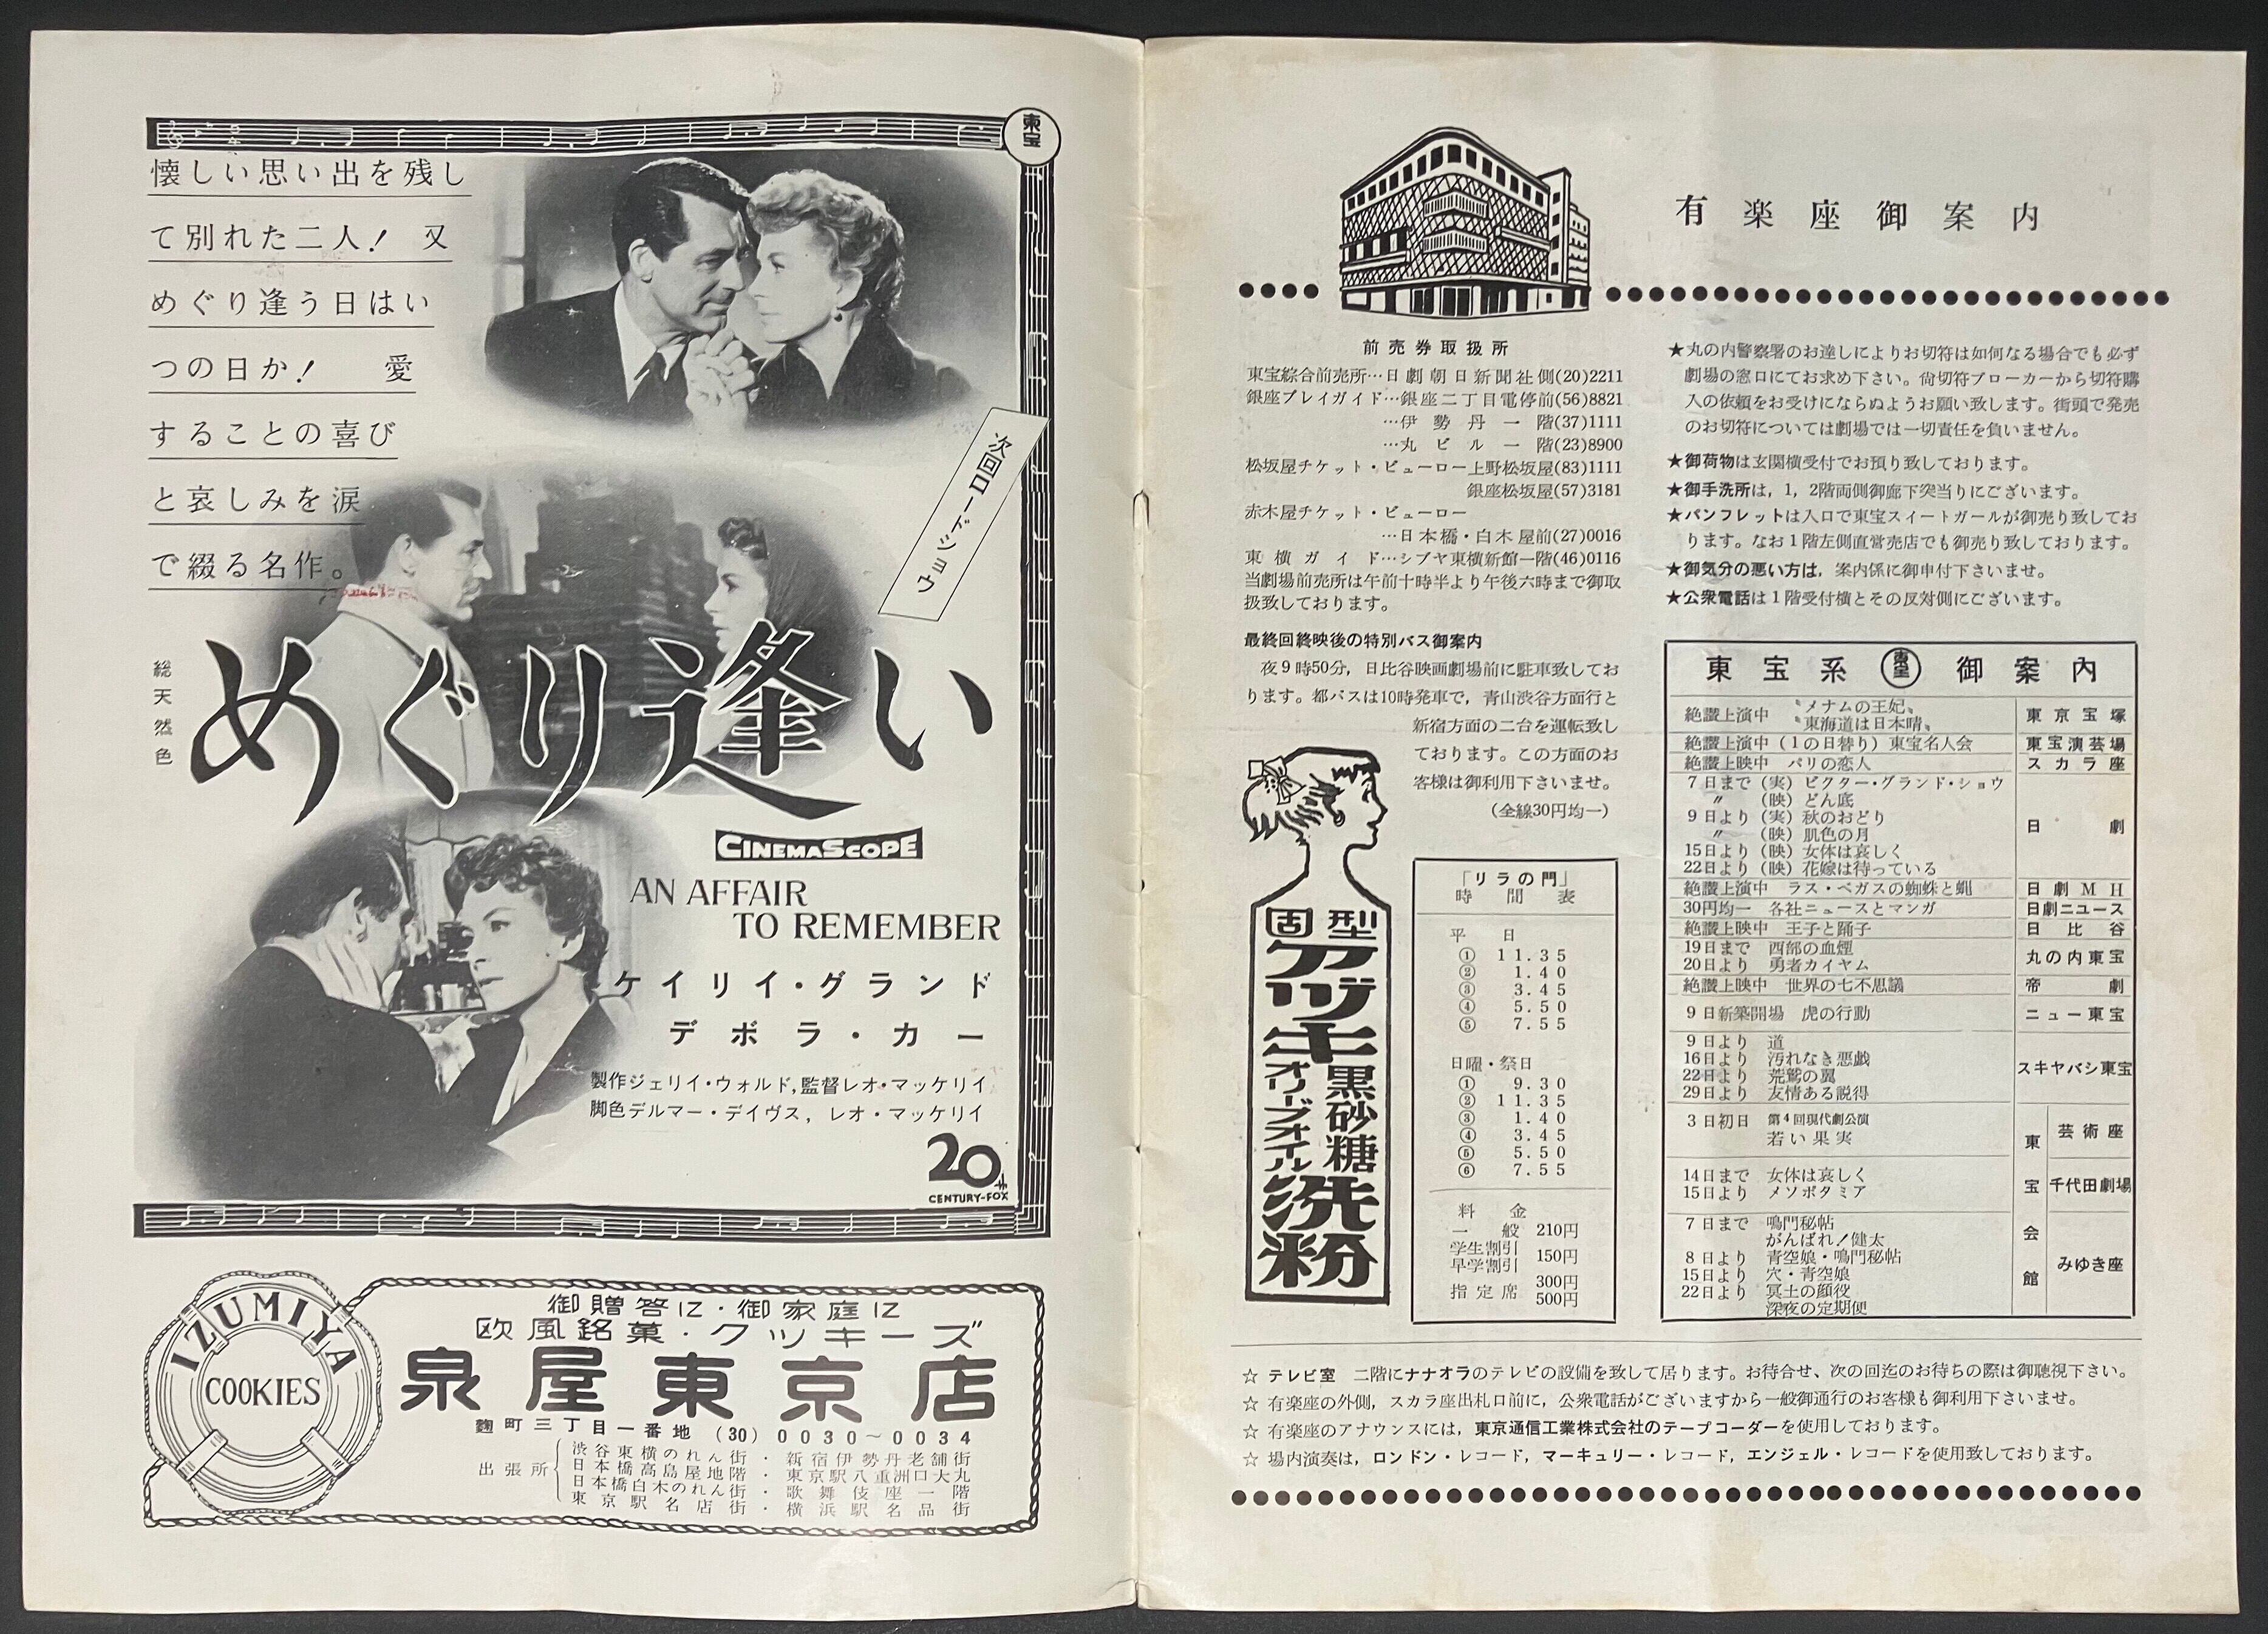 東宝
懐しい思い出を残し
て別れた二人! 又
めぐり逢う日はい
つの日か! 愛
することの喜び
と哀しみを涙
で綴る名作。
次回ロードショウ
総天然色
めぐり逢い
CINEMASCOPE
AN AFFAIR
TO REMEMBER
ケイリイ・グランド
デボラ・カー
製作ジェリイ・ウォルド,監督レオ・マッケリイ
脚色デルマー・デイヴス, レオ・マッケリイ
20th
CENTURY-FOX
IZUMIYA
COOKIES
御贈答に・御家庭に
欧風銘菓・クッキーズ
泉屋東京店
麹町三丁目一番地 (30) 0030~0034
出張所
渋谷東横のれん街・新宿伊勢丹老舗街
日本橋高島屋地階・東京駅八重洲口大丸
日本橋白木のれん街・歌舞伎座一階
東京駅名店街・横浜駅名品街
有楽座御案内
前売券取扱所
東宝綜合前売所…日劇朝日新聞社側(20)2211
銀座プレイガイド…銀座二丁目電停前(56)8821
…伊勢丹一階(37)1111
…丸ビル一階(23)8900
松坂屋チケット・ビューロー上野松坂屋(83)1111
銀座松坂屋(57)3181
赤木屋チケット・ビューロー
…日本橋・白木屋前(27)0016
東横ガイド…シブヤ東横新館一階(46)0116
当劇場前売所は午前十時半より午後六時まで御取
扱致しております。
最終回終映後の特別バス御案内
夜9時50分, 日比谷映画劇場前に駐車致してお
ります。都バスは10時発車で, 青山渋谷方面行と
新宿方面の二台を運転致し
ております。この方面のお
客様は御利用下さいませ。
(全線30円均一)
固型
ウヅキ
黒砂糖
オリーブオイル
洗粉
「リラの門」
時間表
平日
① 11.35
② 1.40
③ 3.45
④ 5.50
⑤ 7.55
日曜・祭日
① 9.30
② 11.35
③ 1.40
④ 3.45
⑤ 5.50
⑥ 7.55
料金
一般 210円
学生割引
早学割引 150円
指定席 300円
500円
★丸の内警察署のお達しによりお切符は如何なる場合でも必ず
劇場の窓口にてお求め下さい。尚切符ブローカーから切符購
入の依頼をお受けにならぬようお願い致します。街頭で発売
のお切符については劇場では一切責任を負いません。
★御荷物は玄関横受付でお預り致しております。
★御手洗所は, 1, 2階両側御廊下突当りにございます。
★パンフレットは入口で東宝スイートガールが御売り致してお
ります。なお1階左側直営売店でも御売り致しております。
★御気分の悪い方は, 案内係に御申付下さいませ。
★公衆電話は1階受付横とその反対側にございます。
東宝系 東宝 御案内
絶讃上演中 〝メナムの王妃〟
〝東海道は日本晴〟 東京宝塚
絶讃上演中 (1の日替り) 東宝名人会 東宝演芸場
絶讃上映中 パリの恋人 スカラ座
7日まで (実) ビクター・グランド・ショウ
〃 (映) どん底
9日より (実) 秋のおどり
〃 (映) 肌色の月
15日より (映) 女体は哀しく
22日より (映) 花嫁は待っている
日劇
絶讃上演中 ラス・ベガスの蜘蛛と蝿 日劇MH
30円均一 各社ニュースとマンガ 日劇ニユース
絶讃上映中 王子と踊子 日比谷
19日まで 西部の血煙
20日より 勇者カイヤム
丸の内東宝
絶讃上映中 世界の七不思議 帝劇
9日新築開場 虎の行動 ニュー東宝
9日より 道
16日より 汚れなき悪戯
22日より 荒鷲の翼
29日より 友情ある説得
スキヤバシ東宝
東宝会館
3日初日 第4回現代劇公演
若い果実
芸術座
14日まで 女体は哀しく
15日より メソポタミア
千代田劇場
7日まで 鳴門秘帖
がんばれ!健太
8日より 青空娘・鳴門秘帖
15日より 穴・青空娘
22日より 冥土の顔役
深夜の定期便
みゆき座
☆ テレビ室 二階にナナオラのテレビの設備を致して居ります。お待合せ、次の回迄のお待ちの際は御聴視下さい。
☆ 有楽座の外側, スカラ座出札口前に, 公衆電話がございますから一般御通行のお客様も御利用下さいませ。
☆ 有楽座のアナウンスには, 東京通信工業株式会社のテープコーダーを使用しております。
☆ 場内演奏は, ロンドン・レコード, マーキュリー・レコード, エンジェル・レコードを使用致しております。